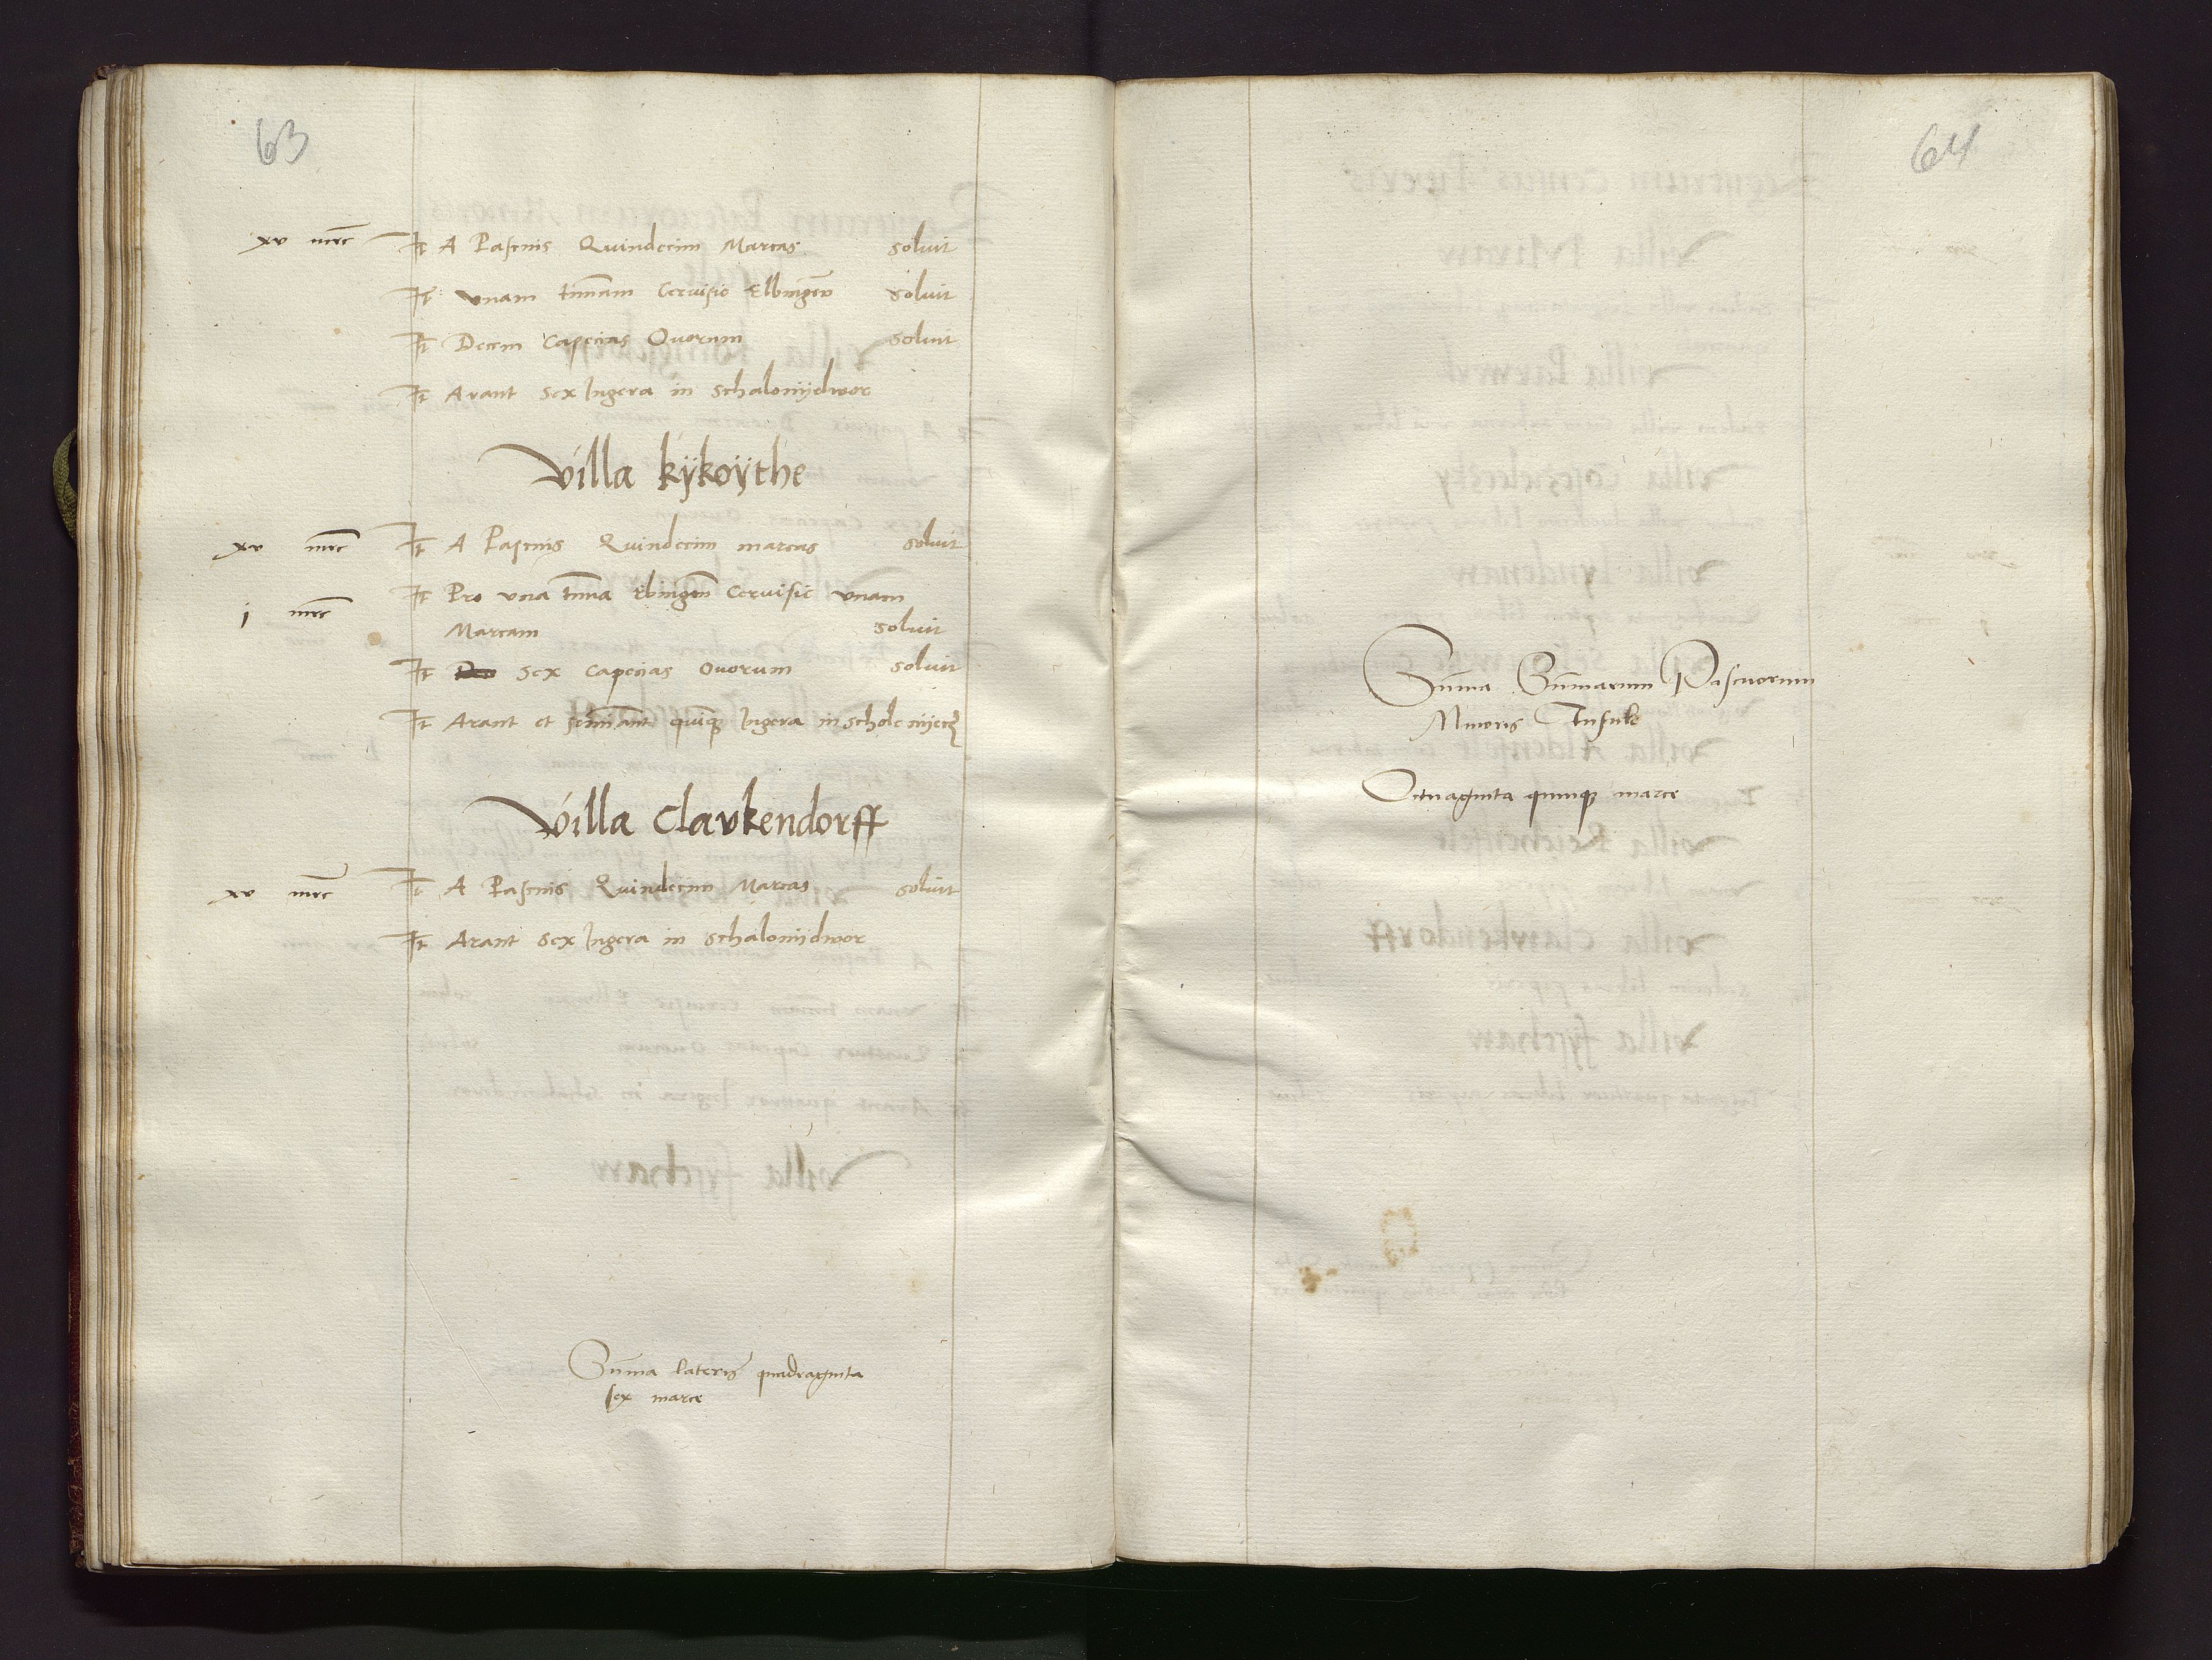 63
xv mrc It A Pascuis Quindecim Marcas soluit
It vnam tunnam Cervisie Elbingen soluit
It Decem Capecias Ovorum soluit
It Arant Sex Iugera in Schalonijdwor
Villa kÿkoÿthe
xv mrc It A Pascuis Quindecim marcas soluit
It Pro vna tunna Elbingen Cervisie vnam
i mrc Marcam soluit
It Sex Capecias Ovorum soluit
It Arant et seminant quinque Iugera in
Villa Clavkendorff
xv mrc It A Pascuis Quindecim Marcas soluit
It Arant Sex Iugera in Schalonijdwor
Summa lateris quadraginta
sex marce
64
Summa Summarum Pascuorum
Minoris Insule
Octuaginta quinque marce